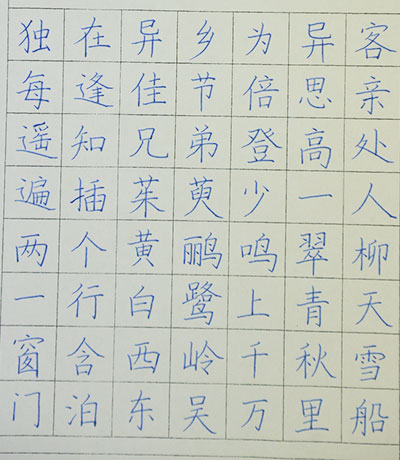 独在异乡为异客
每逢佳节倍思亲
遥知兄弟登高处
遍插茱萸少一人
两个黄鹂鸣翠柳
一行白鹭上青天
窗含西岭千秋雪
门泊东吴万里船